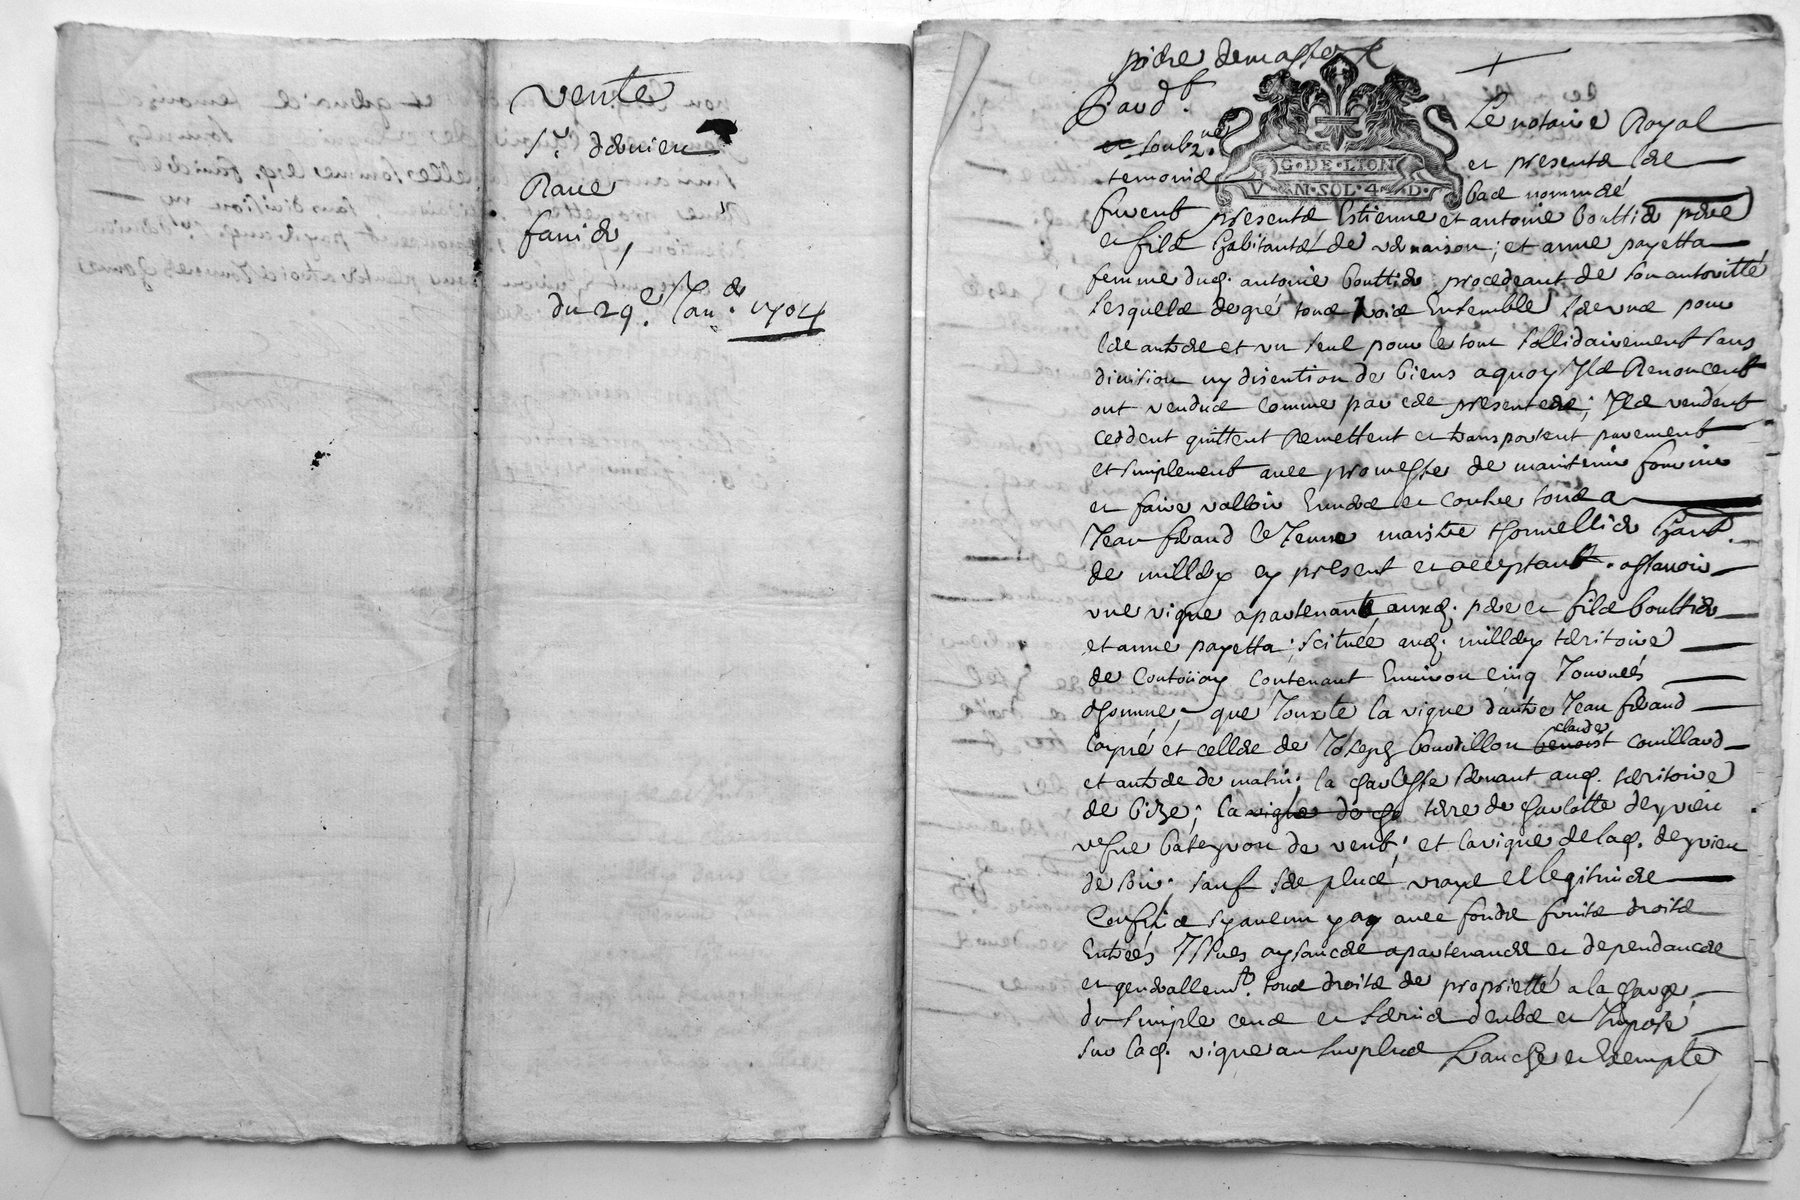 vente
Sr.
Rave
du 29e. Jan. 1704
G · DE · LION
V M · SOL · 4 · D ·
Le notaire Royal
et soubz.ne
et presents
temoins
bas nommés
furent presents Estienne et antoine bouttier pere
et fils habitants de vernaison; et anne payetta
femme dud. antoine bouttier procedeant de son autoritté
lesquels de gré tous trois Ensemble l'un pour
l'autre et un seul pour le tout sollidairement sans
division ny discution de biens a quoy Ils Renoncent
ont vendus comme par ces presentes; Ils vendent
ceddent quittent Remettent et transportent purement
et simplement avec promesse de maintenir fournir
et faire valloir Envers et contre tous a
Jean feraud le Jeune maistre thonnellier habt.
de millery cy present et acceptant. assavoir
une vigne apartenante auxd. pere et fils bouttier
et anne payetta; scituée aud. millery teritoire
de contenant Environ cinq Journées
d'homme, que Jouxte la vigne d'autre Jean feraud
et celle de Joseph bourdillon claude couillard
et autre de matin; la aud. teritoire
de bize; la terre de
vefve de vent; et la vigne de lad.
de soir. sauf ses plus vrays et legitimes
Confins sy aucun y a avec fonds fruits droits
Entrées Issues aysances apartenances et dependances
et generallemt. tous droits de proprietté a la charge
du simple cens et servis deubs et Imposé
sur lad. vigne au surplus franche et Exempte